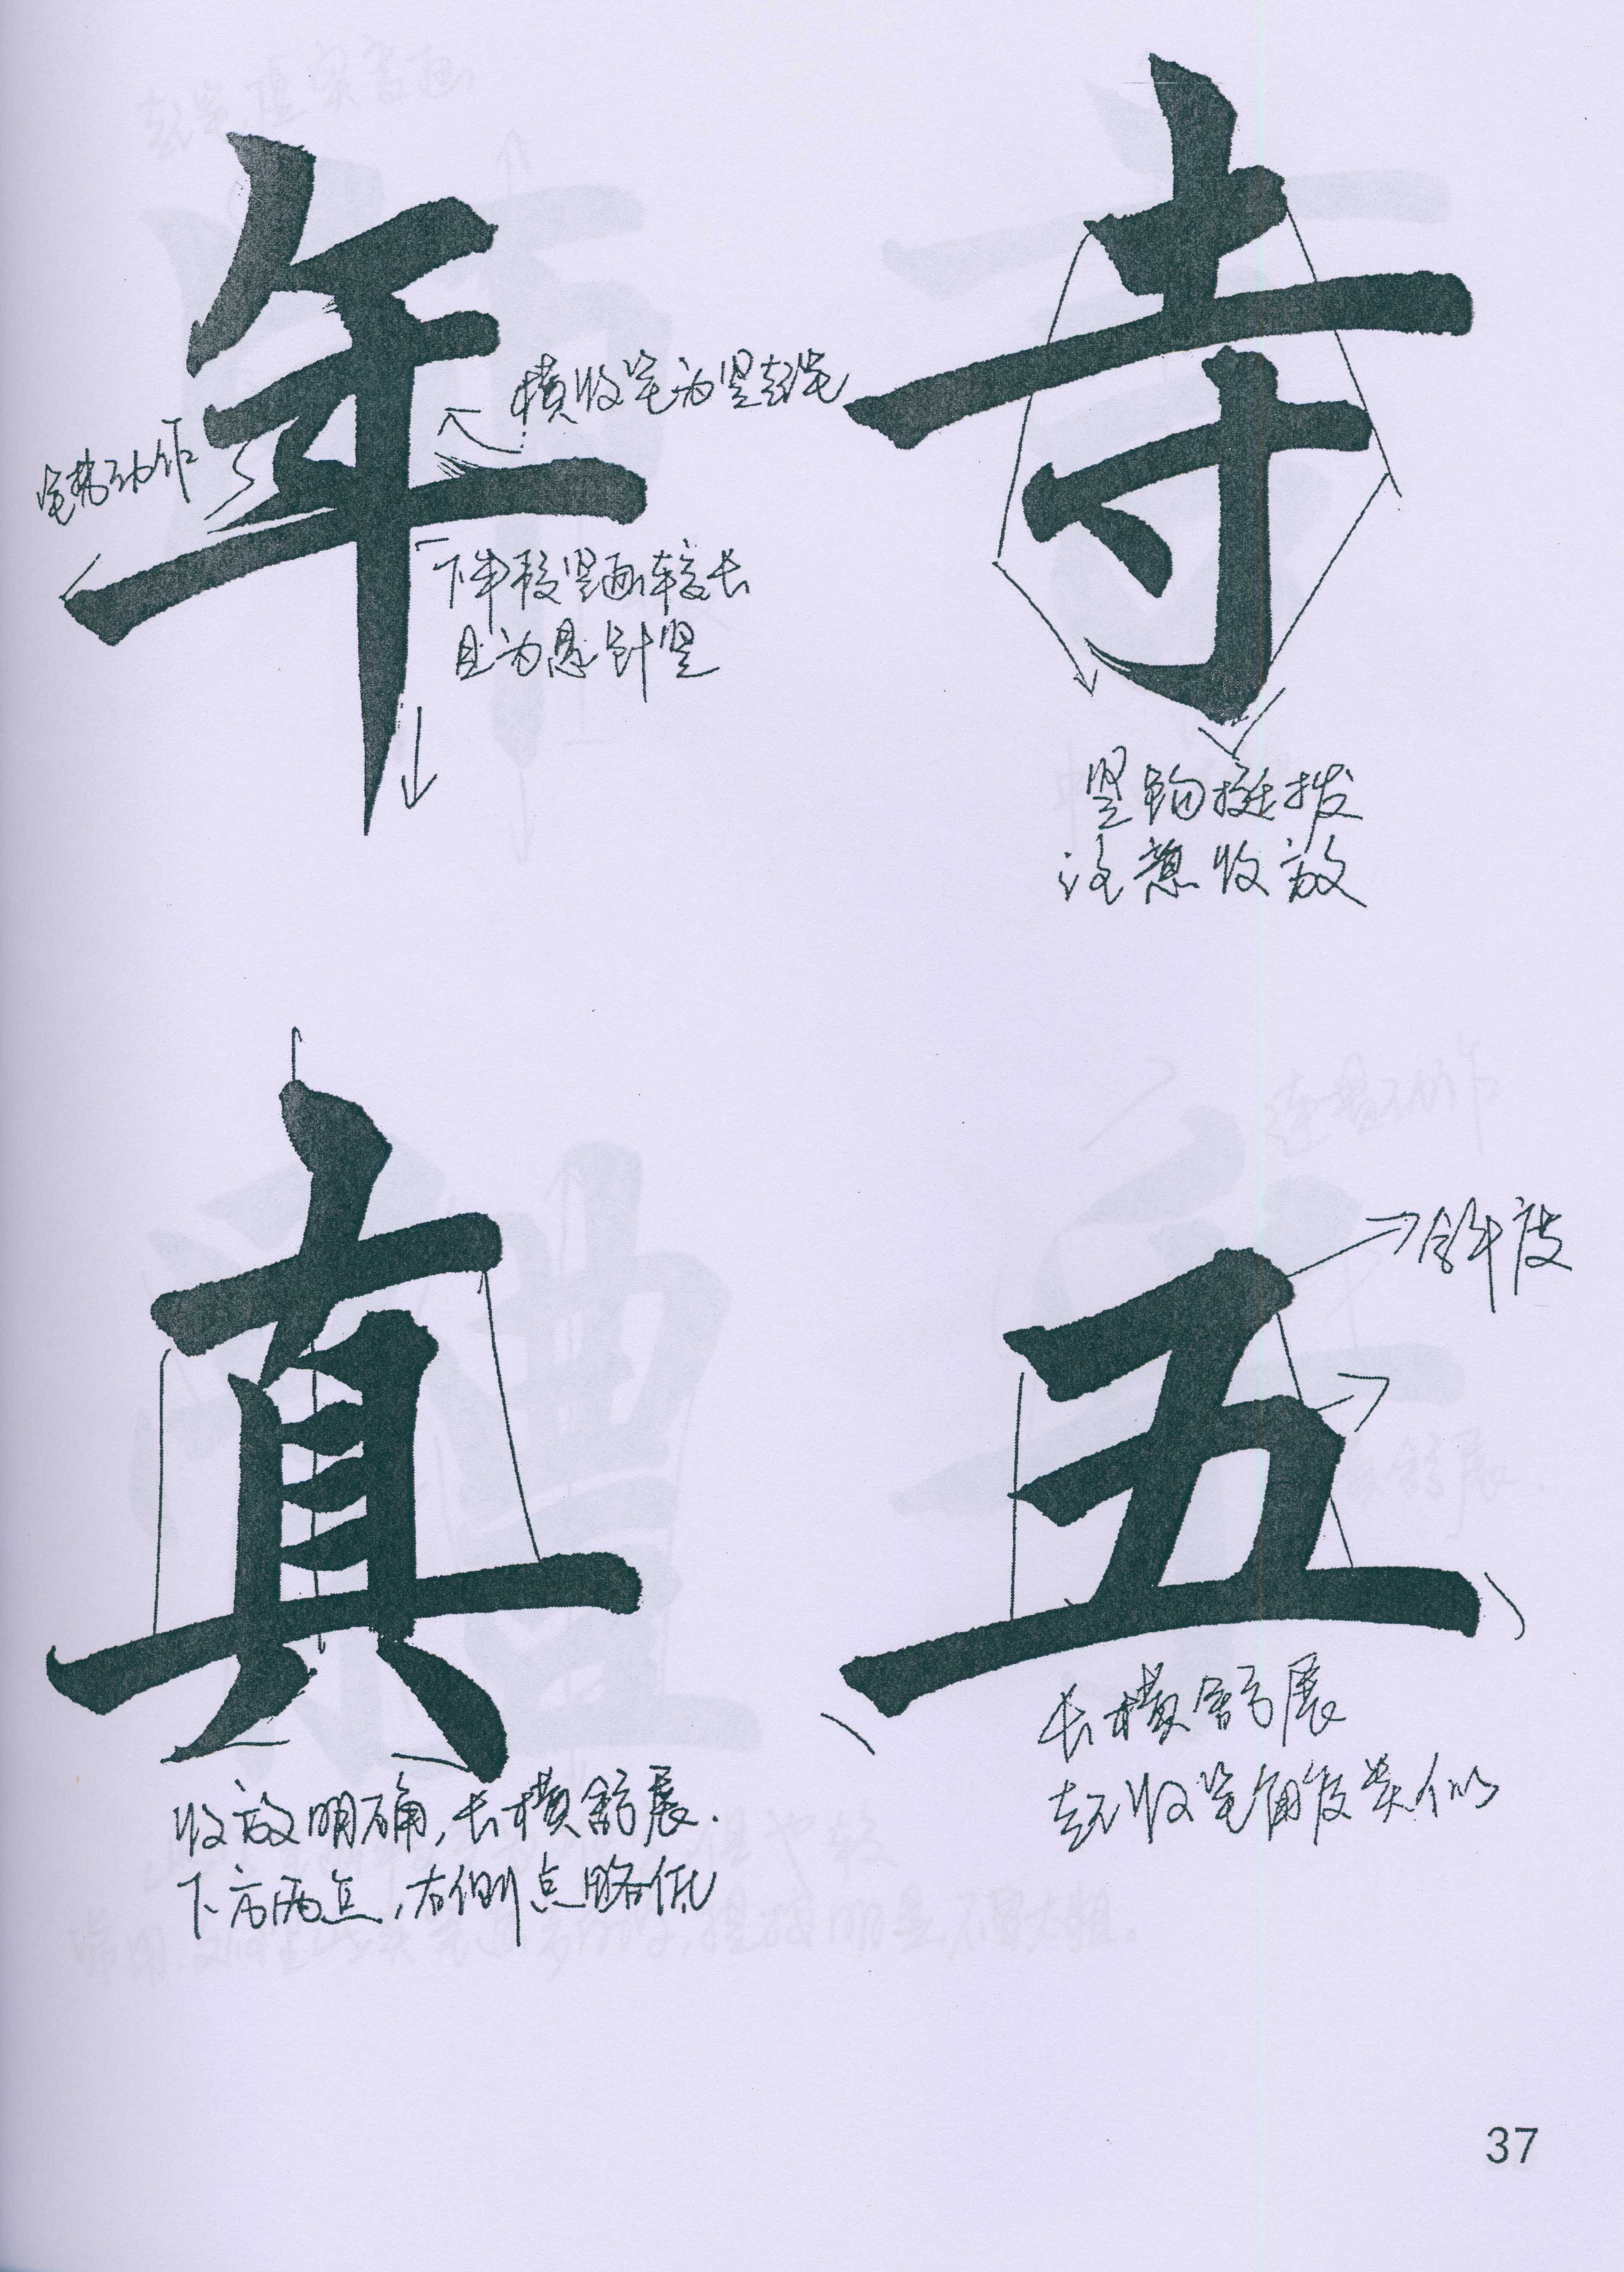 年
横收笔为竖起笔
笔势动作
下半段竖画较长
且为悬针竖
寺
竖钩挺拔
注意收放
真
收放明确,长横舒展.
下方两点,右侧点略低
五
斜度
长横舒展
起收笔角度类似
37